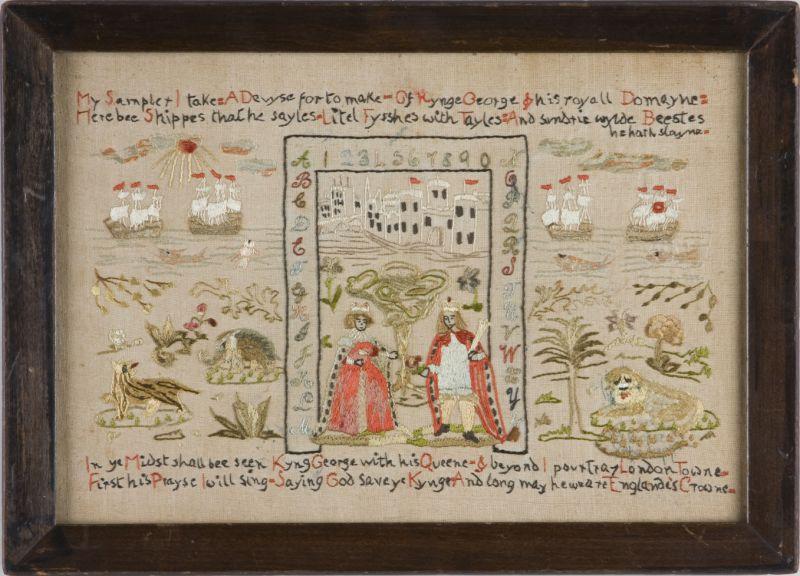 My Sampler I take = A Devyse for to make = Of Kynge George & his royall Domayne =
Here bee Shippes that he sayles = Litel Fysshes with Tayles = And sundrie wylde Beestes
he hath slayne =
A 1 2 3 4 5 6 7 8 9 0
B
C
D
E
F
g
H
I
J
K
L
M
O
P
Q
R
S
T
U
V
W
Y
In ye Midst shall bee seen Kyng George with his Queene = & beyond I pourtray London Towne =
First his Prayse I will sing = Saying God save ye Kynge And long may he weare Englande's Crowne =